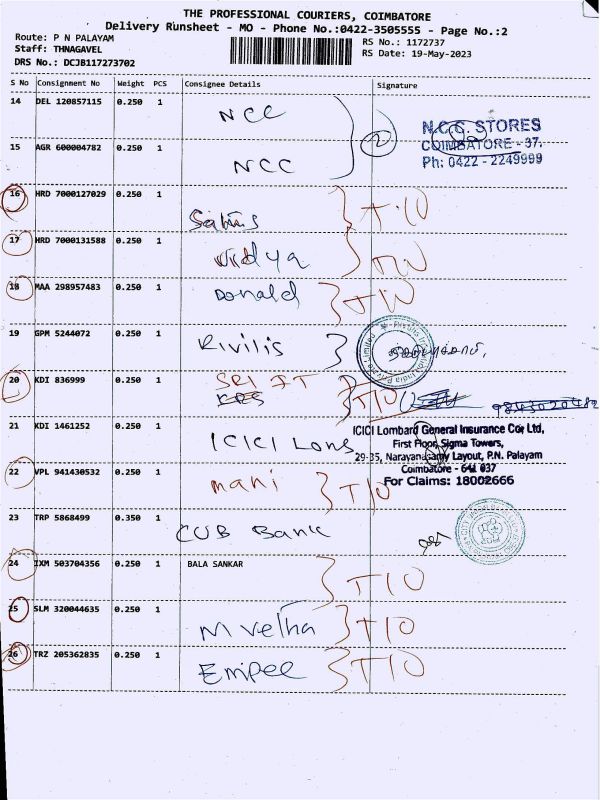 THE PROFESSIONAL COURIERS, COIMBATORE
Delivery Runsheet - MO - Phone No.:0422-3505555 - Page No.:2
Route: P N PALAYAM
RS No.: 1172737
Staff: THNAGAVEL
RS Date: 19-May-2023
DRS No.: DCJB117273702
S No Consignment No Weight PCS Consignee Details Signature
14 DEL 120857115 0.250 1 NCC
2
N.C.C. STORES
COIMBATORE - 37.
Ph: 0422 - 2249999
15 AGR 600004782 0.250 1 NCC
16 HRD 7000127029 0.250 1 T10
17 HRD 7000131588 0.250 1 Vidya T10
18 MAA 298957483 0.250 1 Donald T10
19 GPM 5244072 0.250 1 Rivilis
20 KDI 836999 0.250 1 SRI JT T10
21 KDI 1461252 0.250 1 ICICI Lons
ICICI Lombard General Insurance Cor Ltd,
First Floor, Sigma Towers,
29-35, Narayanasamy Layout, P.N. Palayam
Coimbatore - 641 037
For Claims: 18002666
22 VPL 941430532 0.250 1 mani T10
23 TRP 5868499 0.350 1 CUB Bank
24 IXM 503704356 0.250 1 BALA SANKAR T10
25 SLM 320044635 0.250 1 M Vetha T10
26 TRZ 205362835 0.250 1 Empee T10